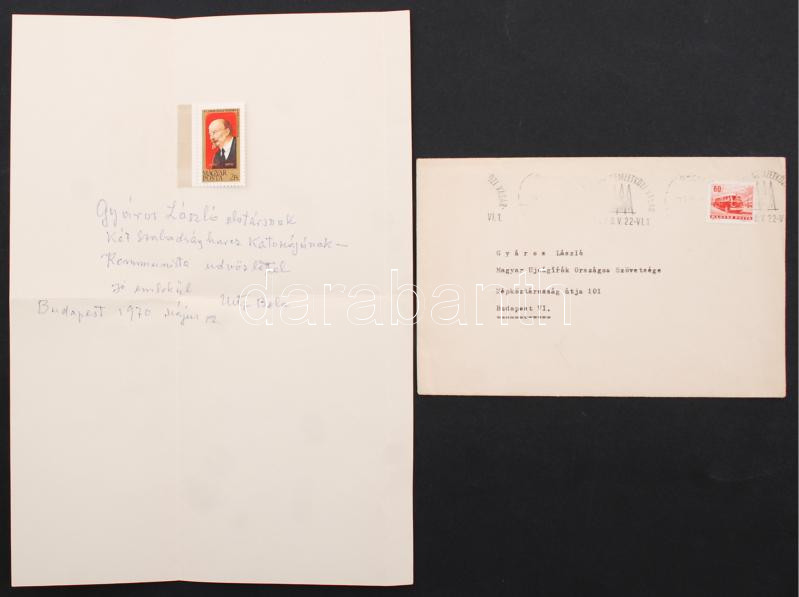 MAGYAR
POSTA 2Ft
Gyáros László elvtársnak
Két szabadságharcz Katonájának —
Kommunista üdvözlettel
jó emlékül Uitz Béla
Budapest 1970 Május 12.
VI.1
V.22-VI.1
60f
MAGYAR POSTA
V.22-VI.1
Gyáros László
Magyar Ujságírók Országos Szövetsége
Népköztársaság útja 101
Budapest VI.
darabanth